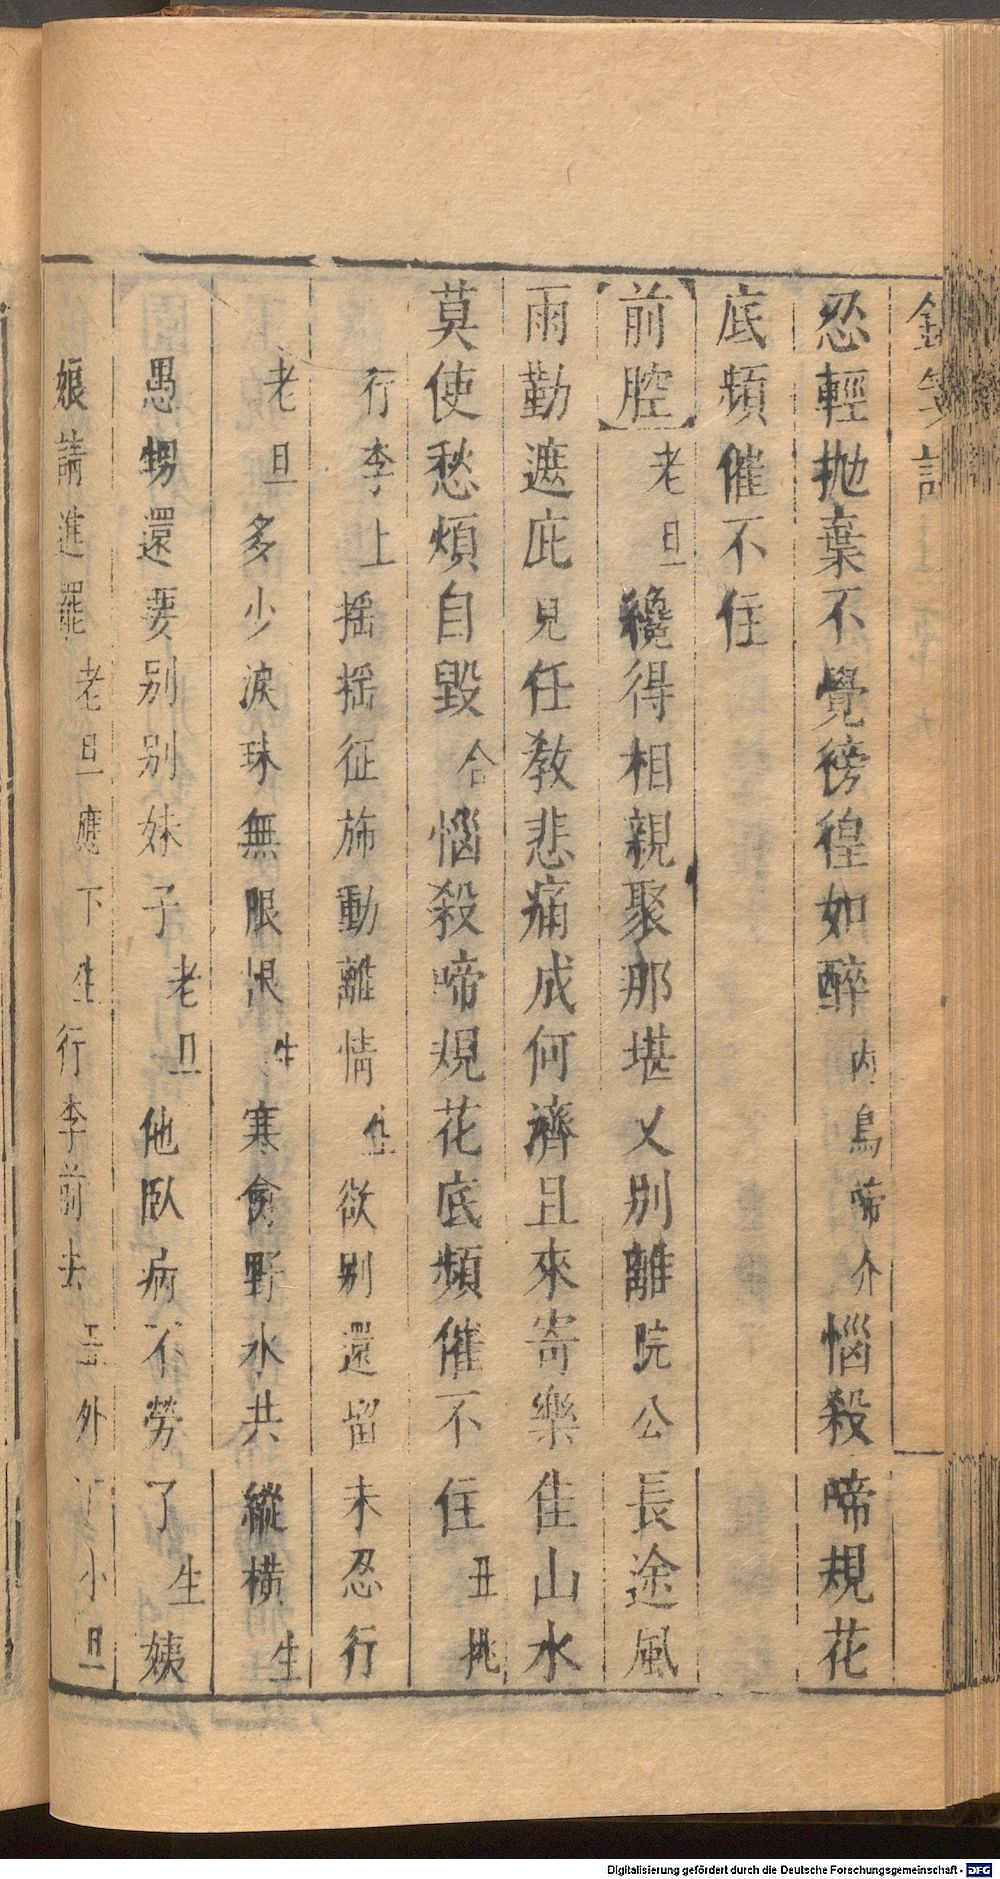 忍輕拋棄不覺徬徨如醉內鳥啼介惱殺啼規花
底頻催不住
前腔老旦纔得相親聚那堪乂別離院公長途風
雨勤遮庇見任教悲痛成何濟且來寄樂佳山水
莫使愁煩自毀合惱殺啼規花底頻催不住丑挑
行李上搖搖征旆動離情生欲別還留未忍行
老旦多少淚珠無限恨生寒食野水共縱橫生
愚甥還要別別妹子老旦他臥病不勞了生姨
娘請進罷老旦應下生行李前去丑外下小旦
Digitalisierung gefördert durch die Deutsche Forschungsgemeinschaft - DFG